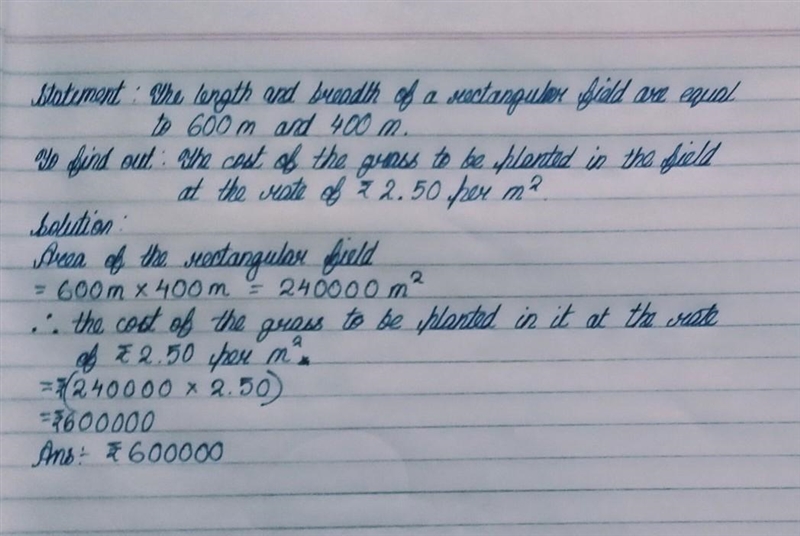 Statement: The length and breadth of a rectangular field are equal
to 600 m and 400 m.
To find out: The cost of the grass to be planted in the field
at the rate of ₹ 2.50 per m².
Solution:
Area of the rectangular field
= 600m × 400m = 240000 m²
∴ the cost of the grass to be planted in it at the rate
of ₹ 2.50 per m².
= ₹(240000 × 2.50)
= ₹600000
Ans:- ₹ 600000